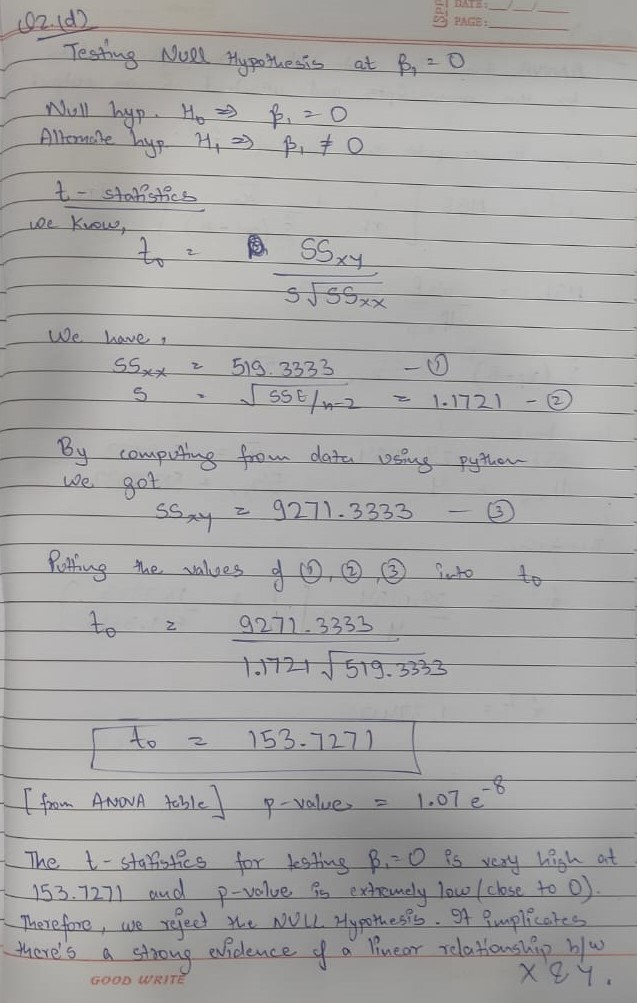 DATE:
PAGE:
Q2.(d)
Testing Null Hypothesis at β₁ = 0
Null hyp. H₀ ⇒ β₁ = 0
Alternate hyp. H₁ ⇒ β₁ ≠ 0
t - statistics
we know,
t₀ = SSxy / s√SSxx
We have,
SSxx = 519.3333 - ①
S = √SSE/n-2 = 1.1721 - ②
By computing from data using python
we got
SSxy = 9271.3333 - ③
Putting the values of ①, ②, ③ into t₀
t₀ = 9271.3333 / 1.1721 √519.3333
t₀ = 153.7271
[from ANOVA table] p-value = 1.07 e⁻⁸
The t-statistics for testing β₁=0 is very high at
153.7271 and p-value is extremely low (close to 0).
Therefore, we reject the NULL Hypothesis. It implicates
there's a strong evidence of a linear relationship b/w
X & Y.
GOOD WRITE